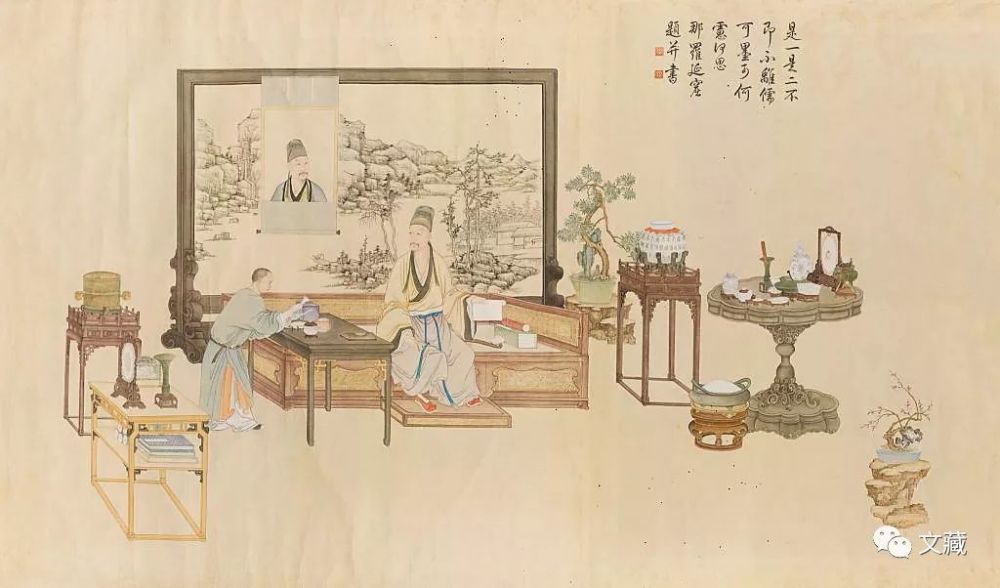 是一是二不
即不離儒
可墨可何
慮何思
那羅延窟
題并書
文藏